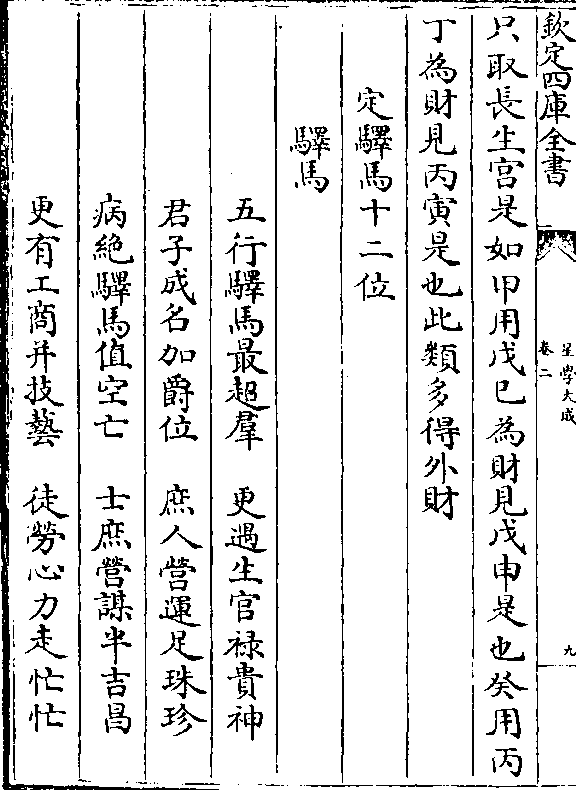 欽定四庫全書
星學大成
卷二
九
只取長生宮是如甲用戊己為財見戊申是也癸用丙
丁為財見丙寅是也此類多得外財
定驛馬十二位
驛馬
五行驛馬最超羣　更遇生官祿貴神
君子成名加爵位　庶人營運足珠珍
病絶驛馬值空亡　士庶營謀半吉昌
更有工商并技藝　徒勞心力走忙忙